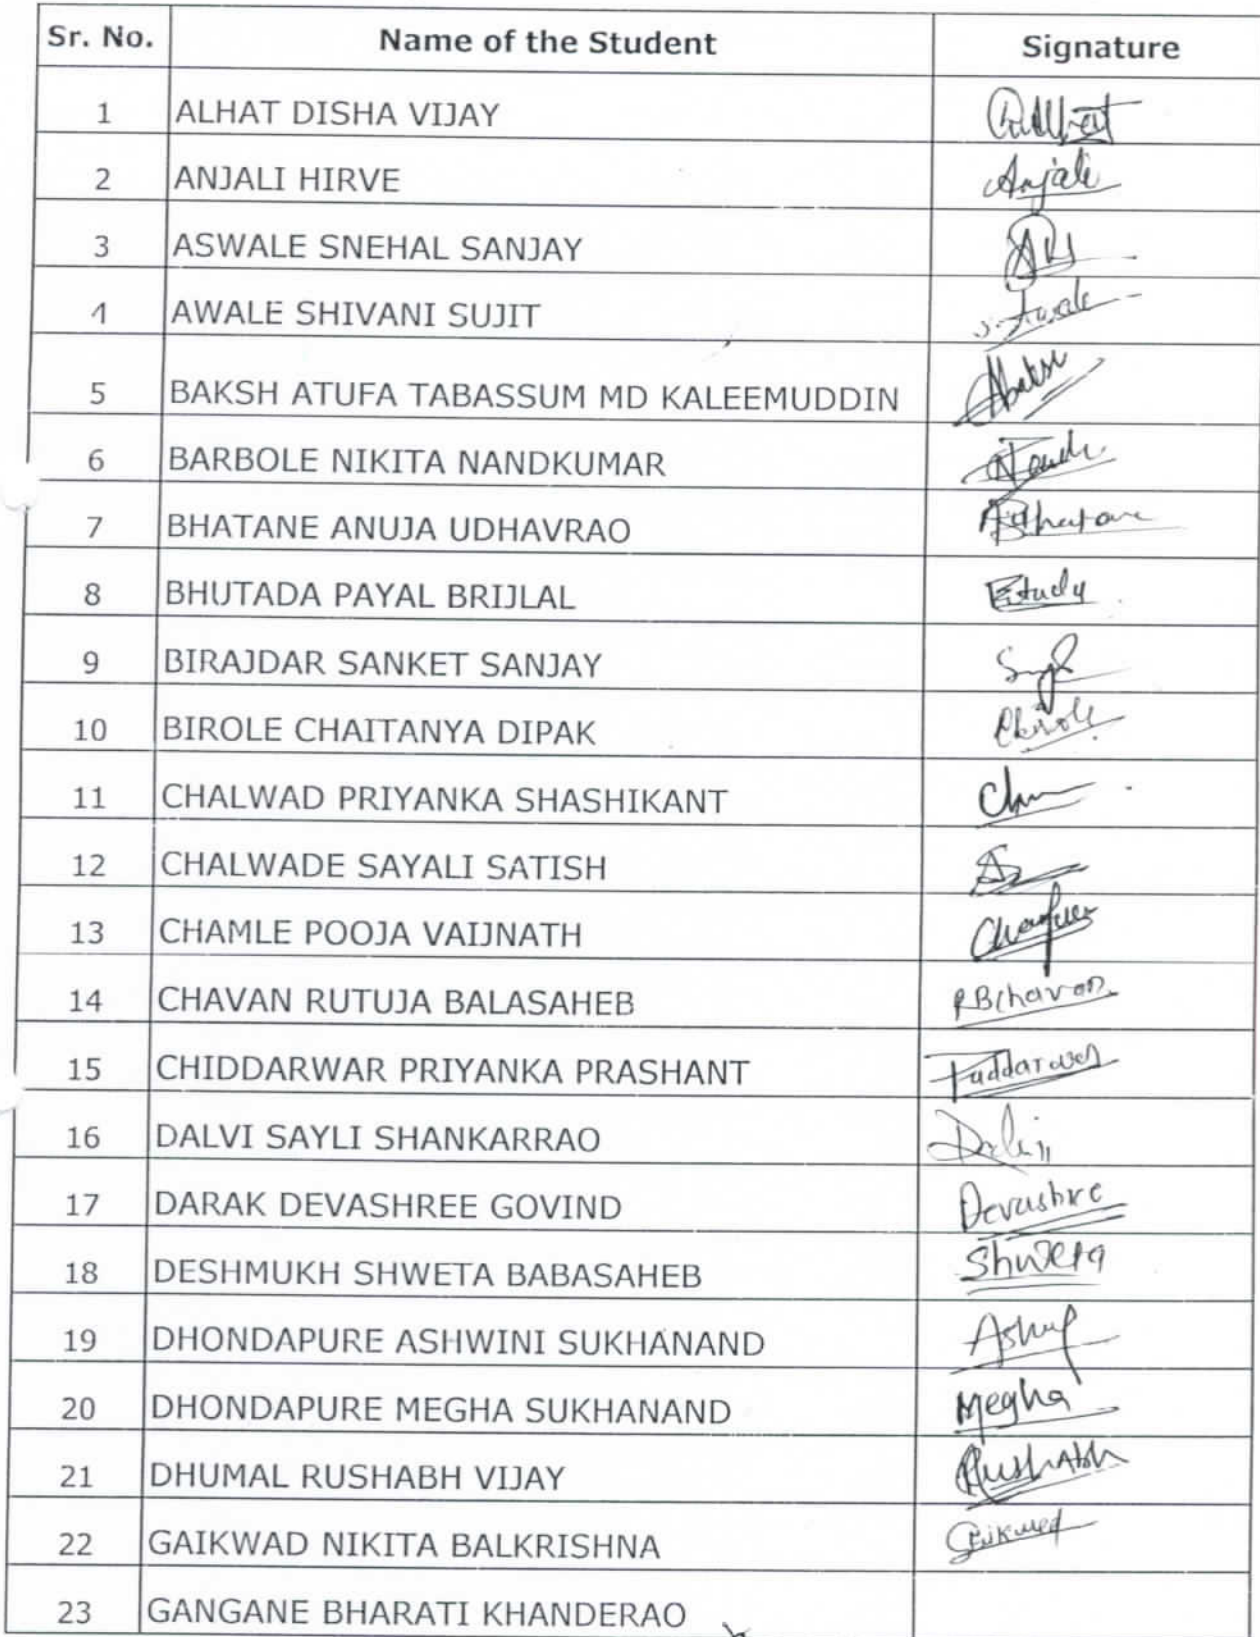 Sr. No. Name of the Student Signature
1 ALHAT DISHA VIJAY
2 ANJALI HIRVE Anjali
3 ASWALE SNEHAL SANJAY
4 AWALE SHIVANI SUJIT
5 BAKSH ATUFA TABASSUM MD KALEEMUDDIN
6 BARBOLE NIKITA NANDKUMAR
7 BHATANE ANUJA UDHAVRAO
8 BHUTADA PAYAL BRIJLAL
9 BIRAJDAR SANKET SANJAY
10 BIROLE CHAITANYA DIPAK
11 CHALWAD PRIYANKA SHASHIKANT
12 CHALWADE SAYALI SATISH
13 CHAMLE POOJA VAIJNATH
14 CHAVAN RUTUJA BALASAHEB RBChavan
15 CHIDDARWAR PRIYANKA PRASHANT
16 DALVI SAYLI SHANKARRAO
17 DARAK DEVASHREE GOVIND Devashre
18 DESHMUKH SHWETA BABASAHEB Shweta
19 DHONDAPURE ASHWINI SUKHANAND
20 DHONDAPURE MEGHA SUKHANAND Megha
21 DHUMAL RUSHABH VIJAY Rushabh
22 GAIKWAD NIKITA BALKRISHNA
23 GANGANE BHARATI KHANDERAO